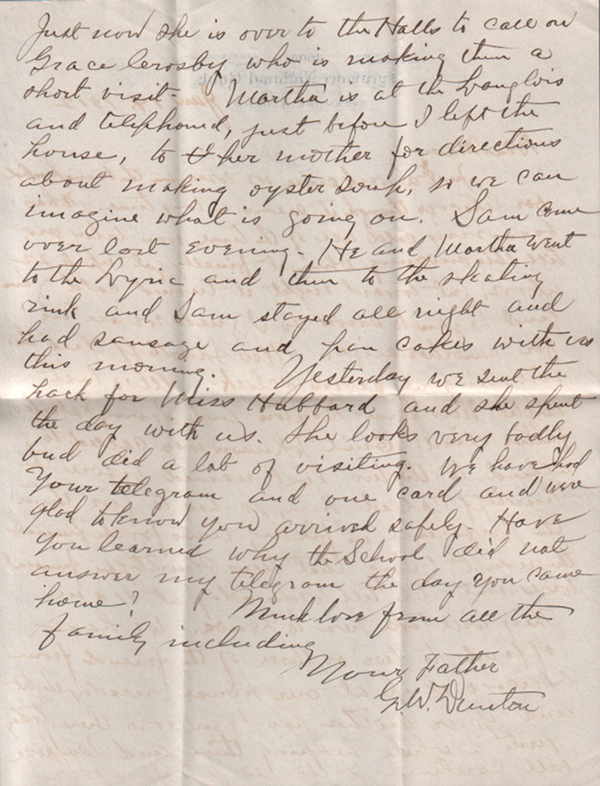 Just now she is over to the Halls to call on
Grace Crosby who is making them a
short visit. Martha is at the Langlois
and telephoned, just before I left the
house, to her mother for directions
about making oyster soup, so we can
imagine what is going on. Sam came
over last evening. He and Martha went
to the Lyric and then to the skating
rink and Sam stayed all night and
had sausage and pan cakes with us
this morning. Yesterday we sent the
hack for Miss Hubbard and she spent
the day with us. She looks very badly
but did a lot of visiting. We have had
Your telegram and one card and were
glad to know you arrived safely. Have
you learned why the School did not
answer my telegram the day you came
home? Much love from all the
family including
Your Father
G.W. Dunton